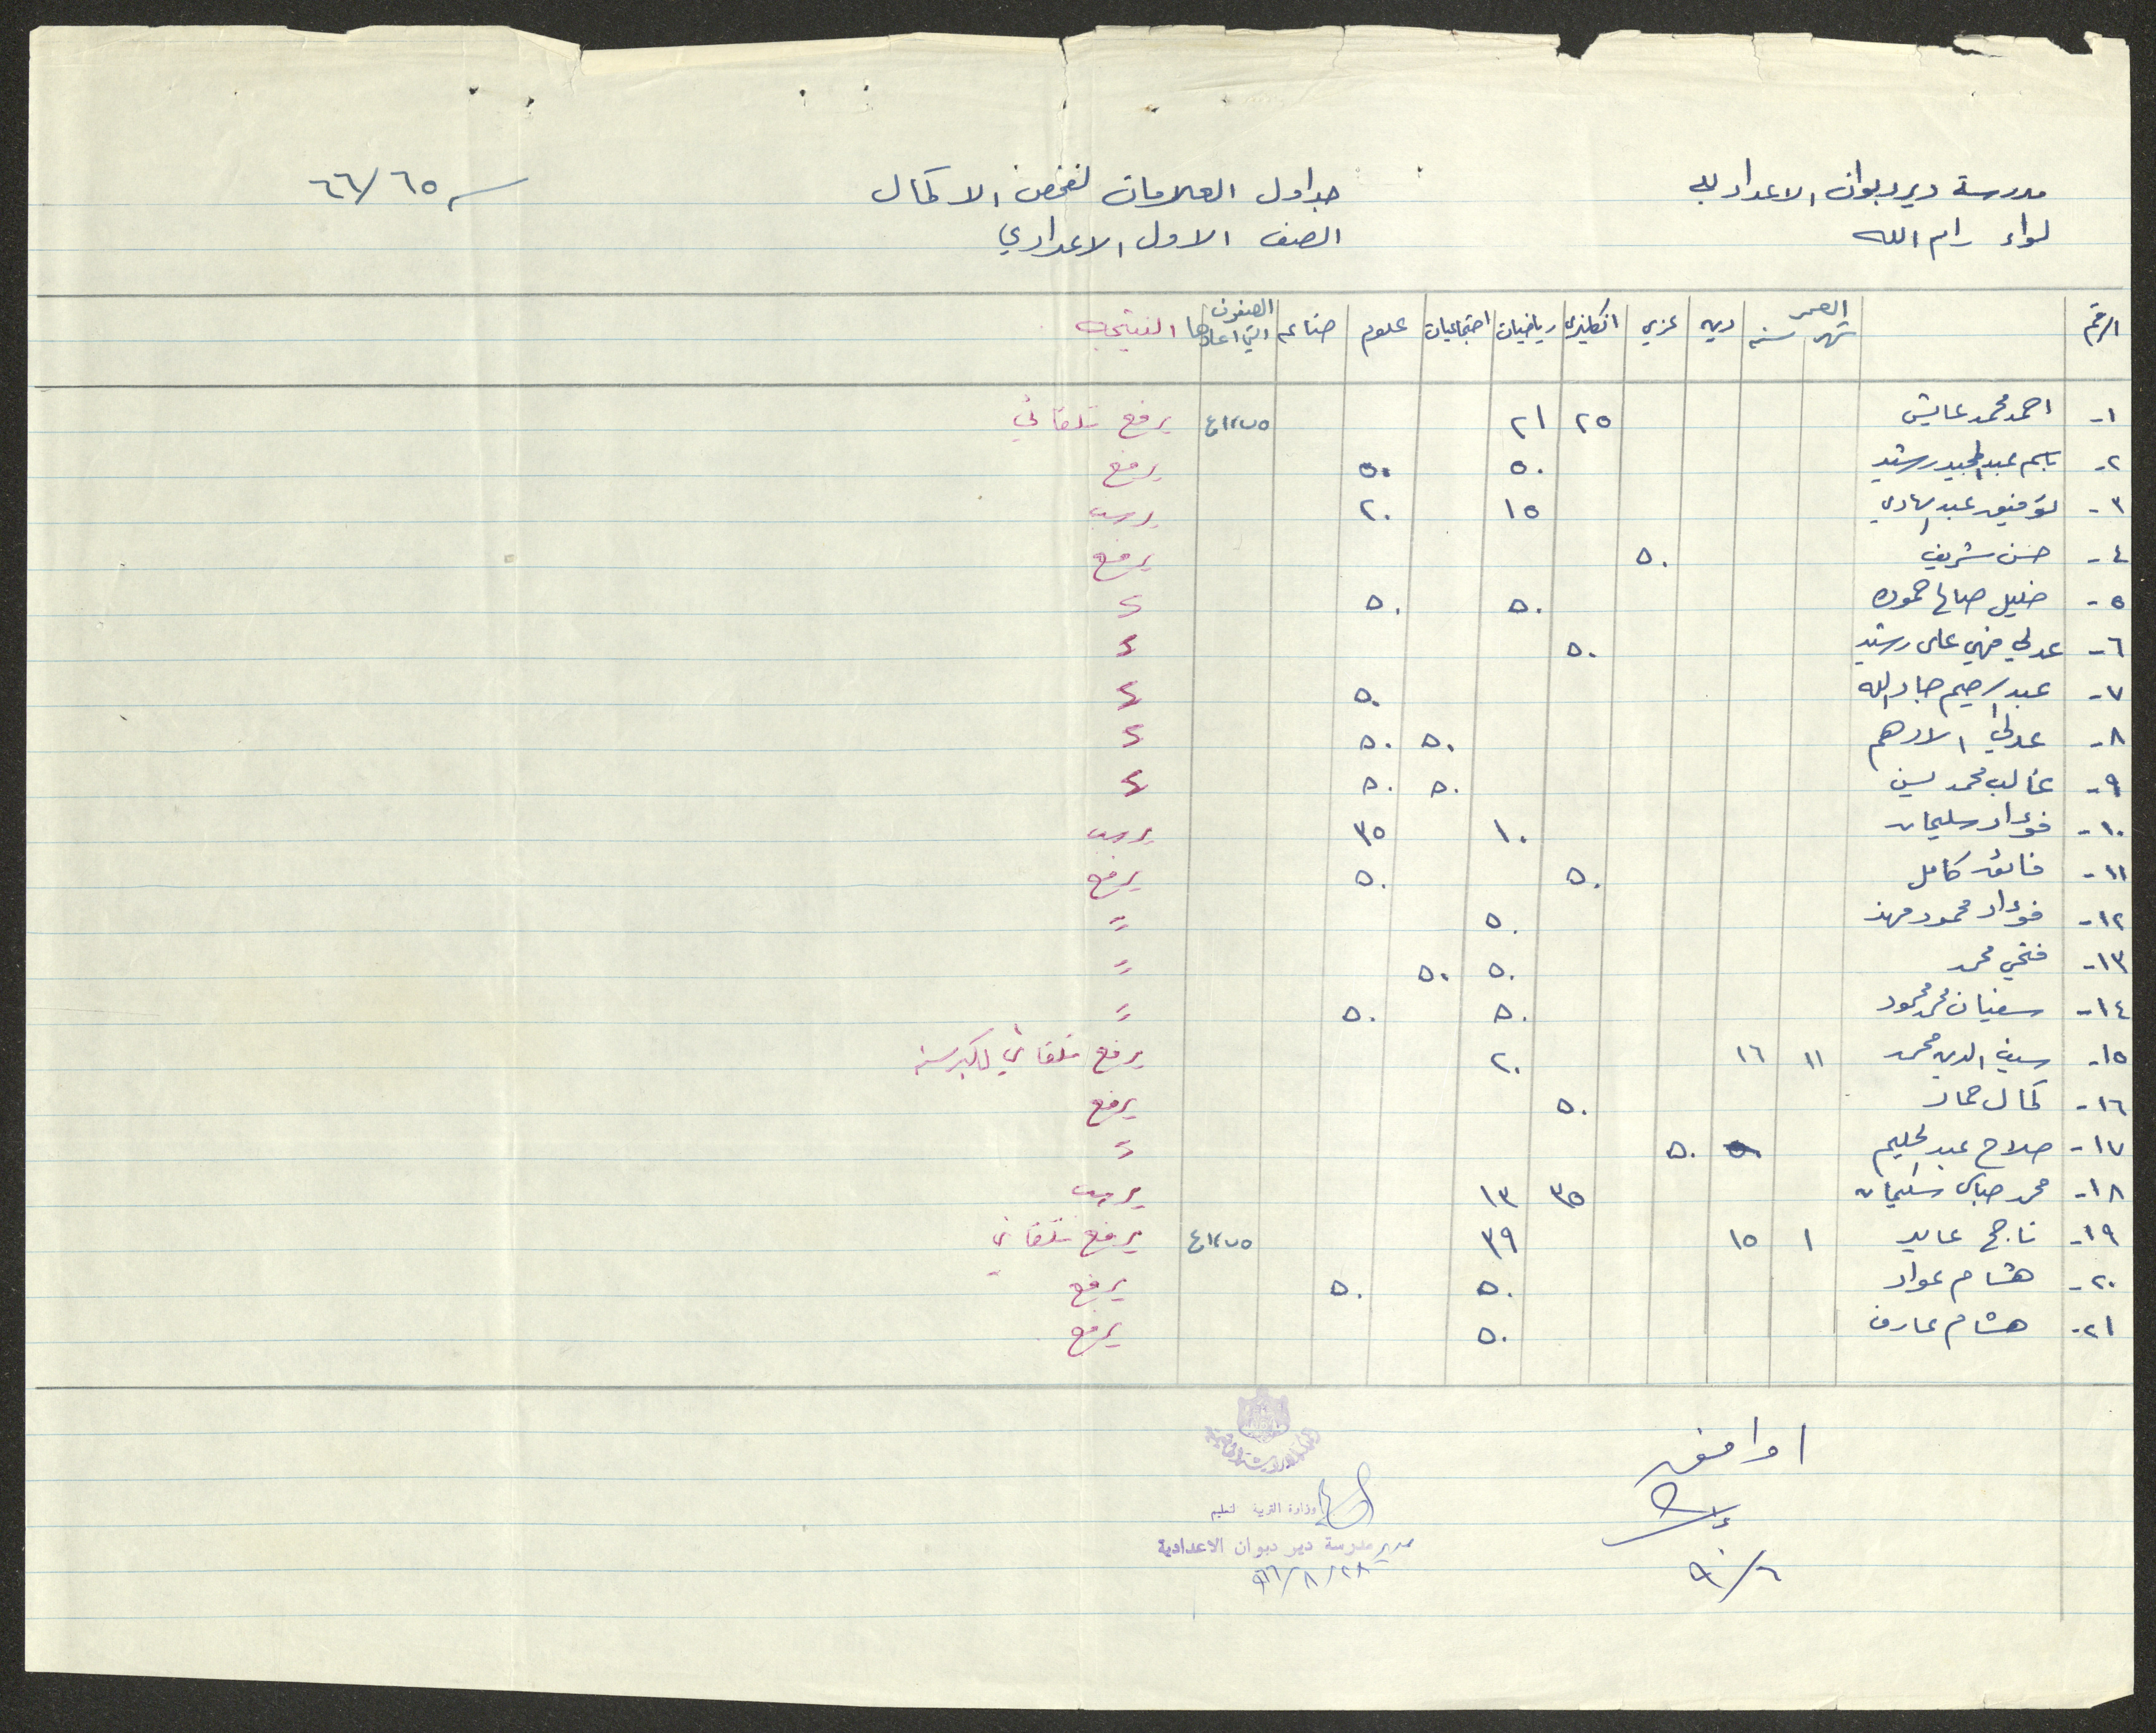 مدرسة دير دبوان الاعدادية جداول العلامات لفحص الاكمال سنة ٦٦/٦٥
لواء رام الله الصف الاول الاعدادي
الرقم العمر شهر سنه دين عربي انكليزي رياضيات اجتماعيات علوم صناعه الصفوف التي اعادها النتيجه
١- احمد محمد عايش ٢٥ ٢١ يرفع تلقائي
٢- باسم عبد المجيد رشيد ٥٠ ٥٠ يرفع
٣- توفيق عبد الهادي ١٥ ٢٠ يرسب
٤- حسن شريف ٥٠ يرفع
٥- خليل صالح حموده ٥٠ ٥٠ =
٦- عدلي فهمي علي رشيد ٥٠ =
٧- عبد الرحيم جاد الله ٥٠ =
٨- عدلي الادهم ٥٠ ٥٠ =
٩- غالب محمد يسين ٥٠ ٥٠ =
١٠- فؤاد سليمان ١٠ ٣٥ يرسب
١١- فائق كامل ٥٠ ٥٠ يرفع
١٢- فؤاد محمود ٥٠ =
١٣- فتحي محمد ٥٠ ٥٠ =
١٤- سفيان محمد محمود ٥٠ ٥٠ =
١٥- سيف الدين محمد ١١ ١٦ ٢٠ يرفع تلقائي لكبر سنه
١٦- كمال حماد ٥٠ يرفع
١٧- صلاح عبد الحليم ٥٠ =
١٨- محمد سليمان ٣٥ ١٣ يرسب
١٩- ناجح عايد ١ ١٥ ٣٩ يرفع تلقائي
٢٠- هشام عواد ٥٠ ٥٠ يرفع
٢١- هشام عارف ٥٠ يرفع
اوافق
٩/٦
المملكة الاردنية الهاشمية
وزارة التربية والتعليم
مدير مدرسة دير دبوان الاعدادية
٩٦٦/٨/٢٨